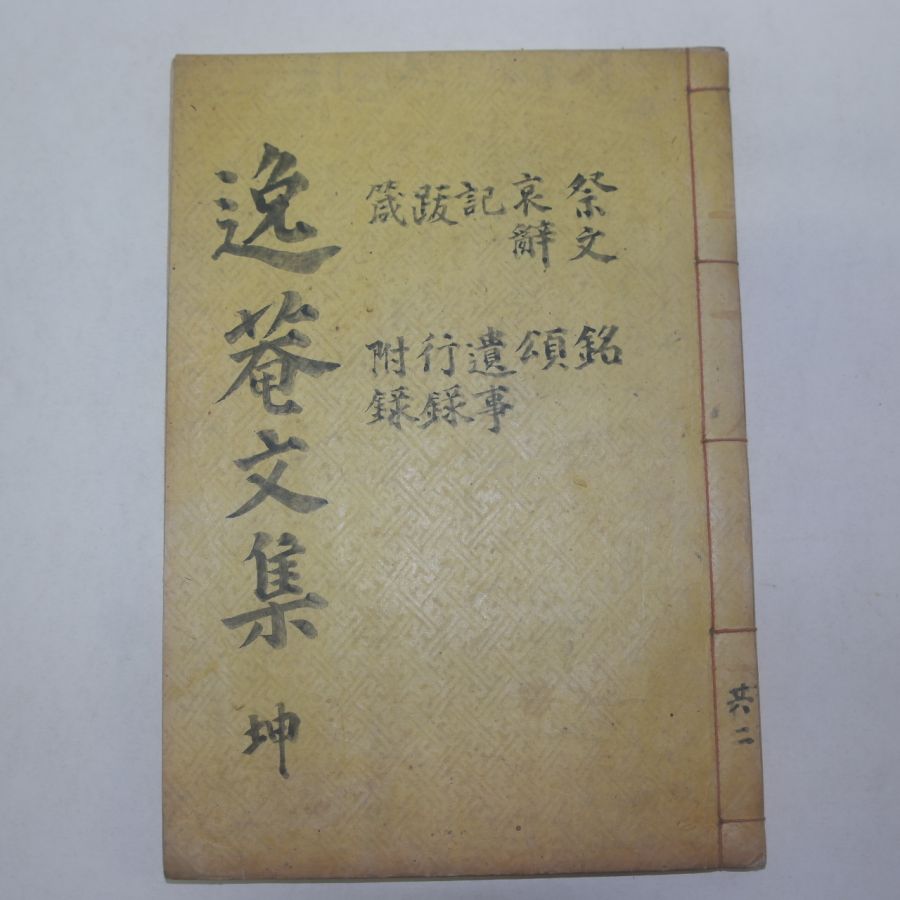 祭文
哀辭
記
跋
箴
銘
頌
遺事
行錄
附錄
逸菴文集 坤
共二